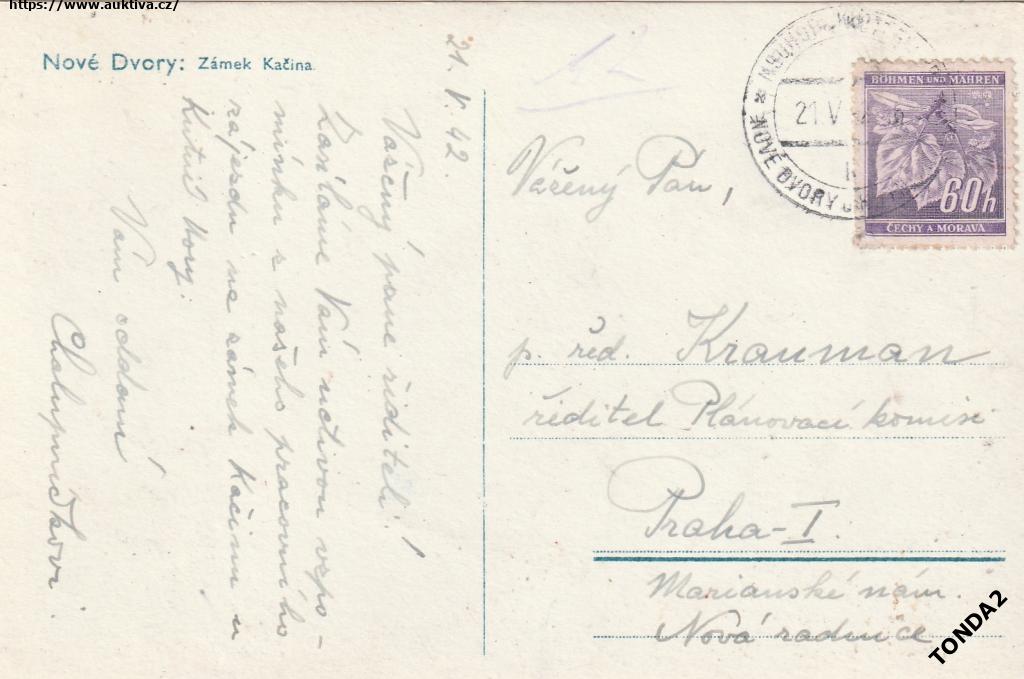 https://www.auktiva.cz/
Nové Dvory: Zámek Kačina
21. V. 42.
Vážený pane řediteli!
Zasíláme Vám uctivou vzpo-
mínku z našeho pracovního
zájezdu na zámek Kačinu u
Kutné Hory.
Vám oddaní
Chalupníčkovi
Vážený Pán,
p. řed. Krauman
ředitel Plánovací komise
Praha-I.
Marianské nám.
Nová radnice
BÖHMEN UND MÄHREN
60h
ČECHY A MORAVA
21.V
NOVÉ DVORY
TONDA2